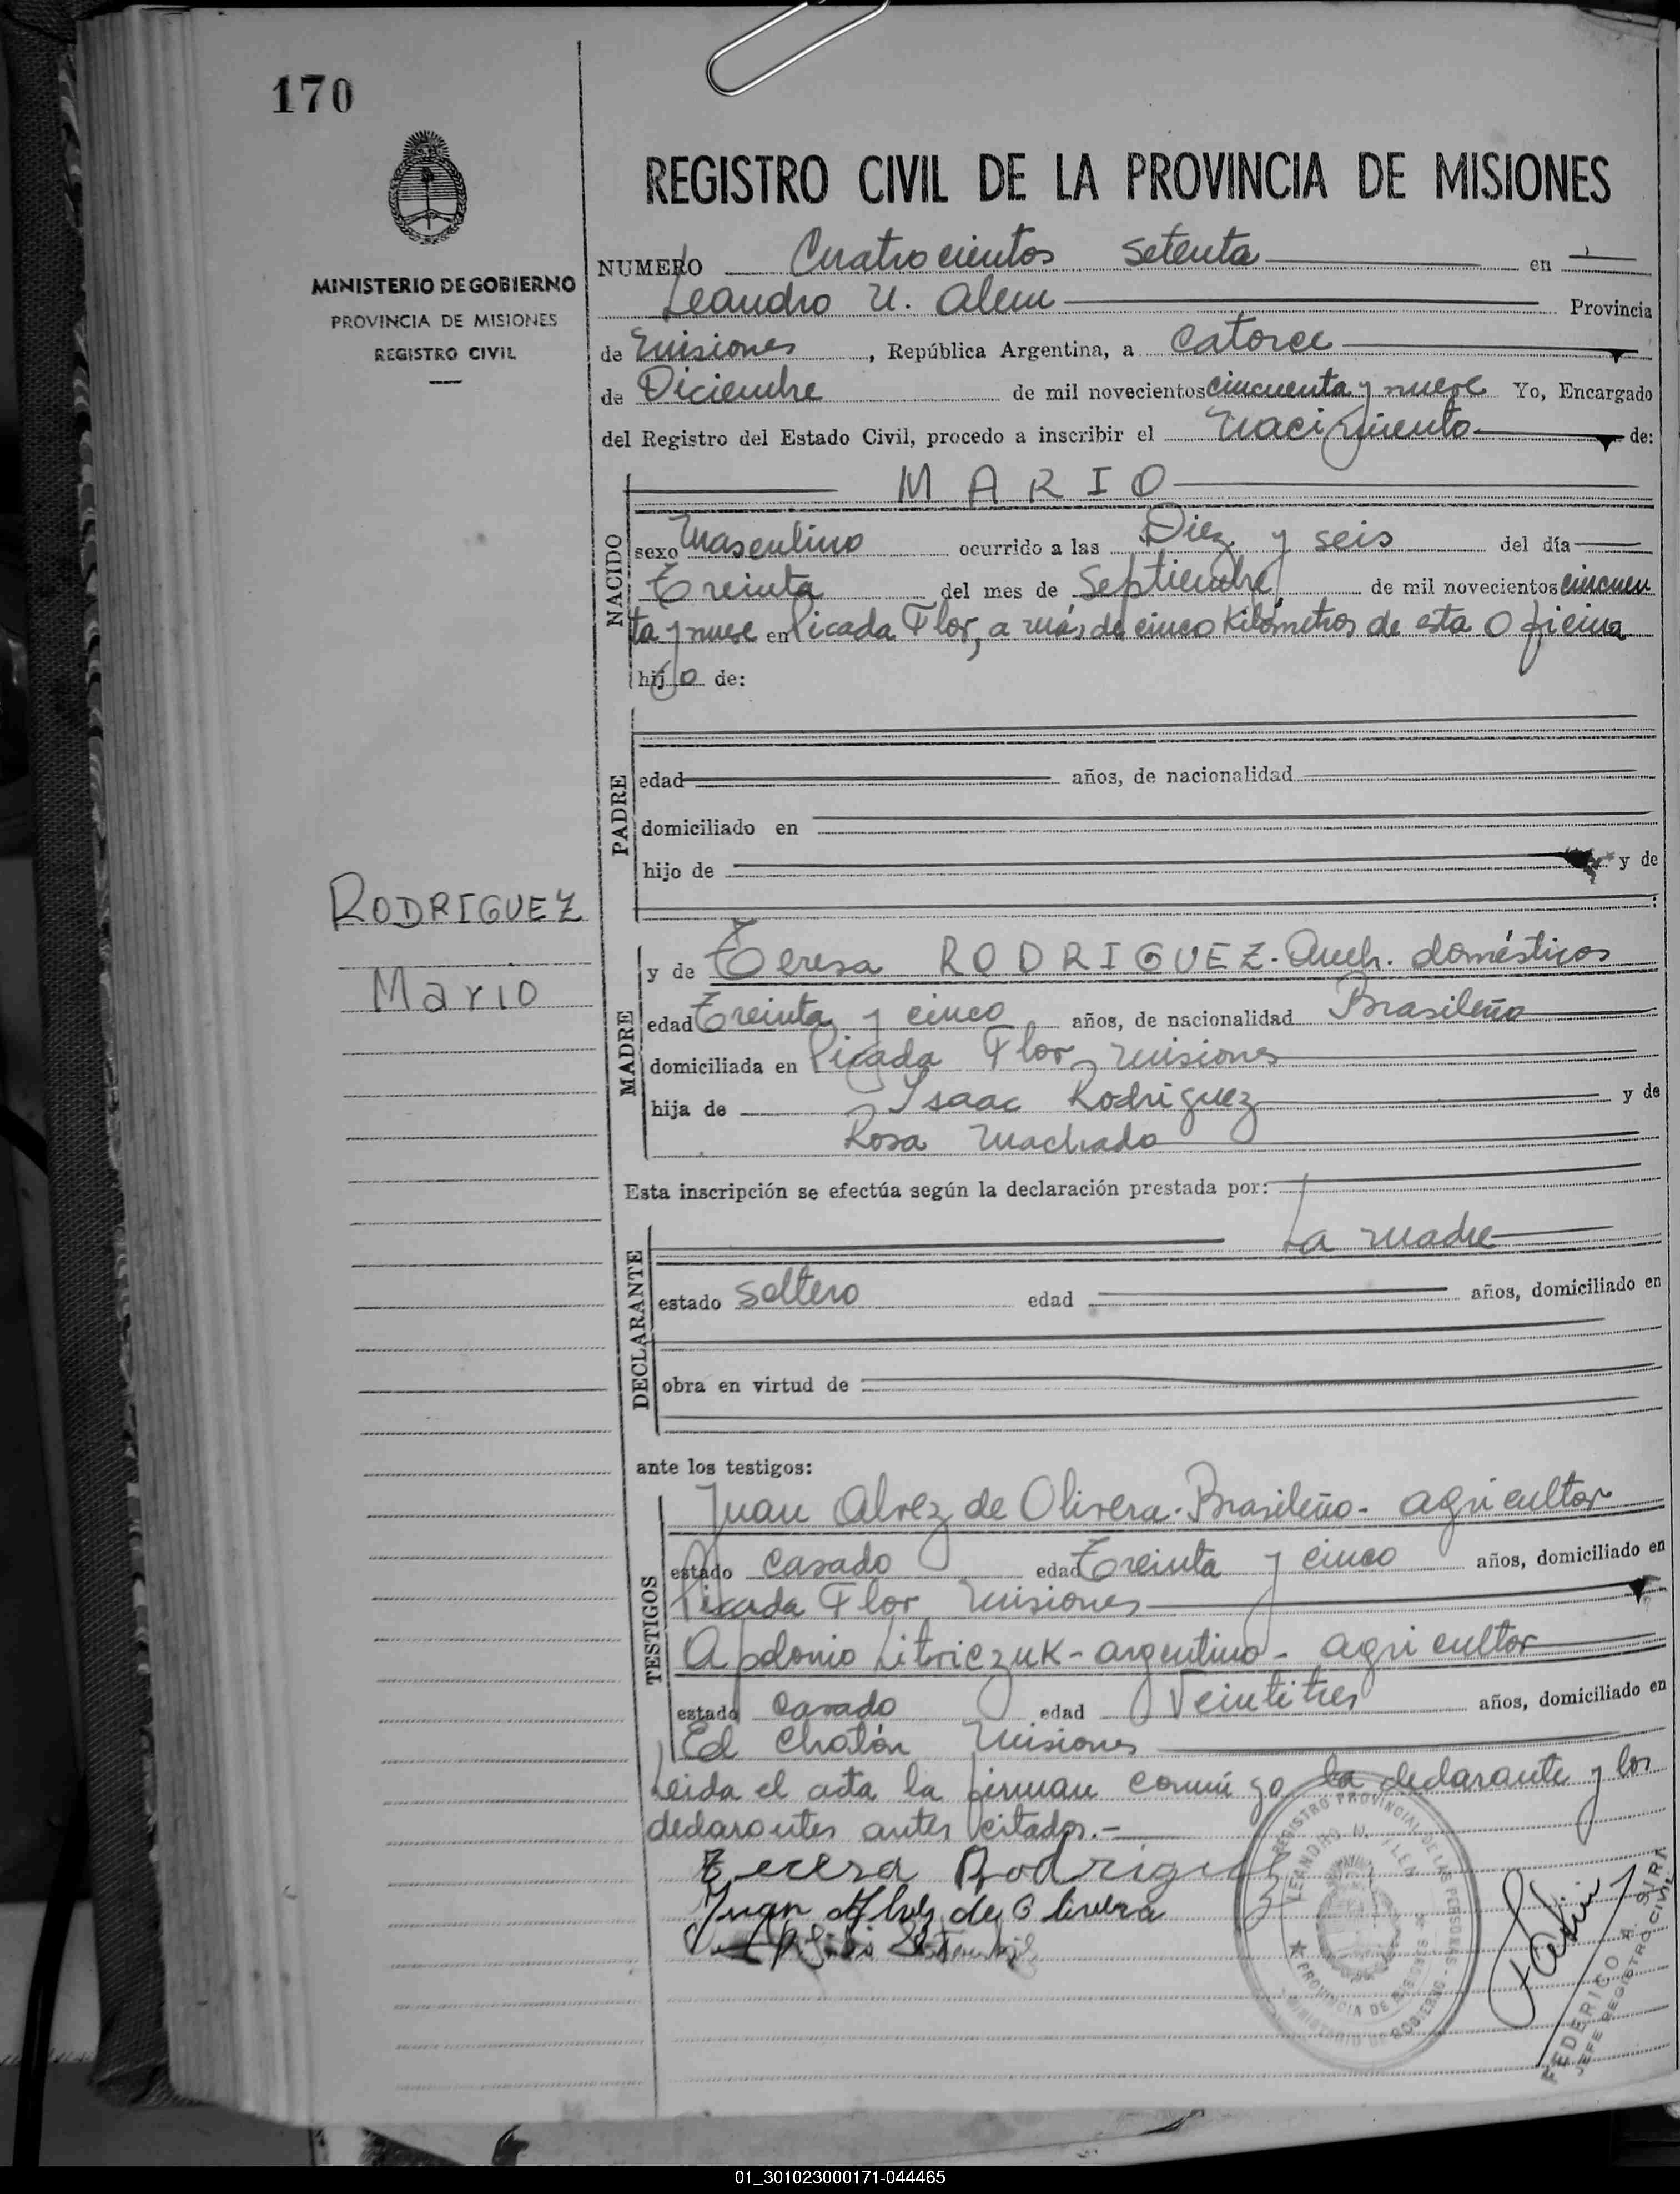 170
REGISTRO CIVIL DE LA PROVINCIA DE MISIONES
MINISTERIO DE GOBIERNO
PROVINCIA DE MISIONES
REGISTRO CIVIL
NUMERO Cuatrocientos Setenta en
Leandro N. Alem Provincia
de Misiones, República Argentina, a Catorce
de Diciembre de mil novecientos cincuenta y nueve Yo, Encargado
del Registro del Estado Civil, procedo a inscribir el Nacimiento de:
NACIDO
MARIO
sexo Masculino ocurrido a las Diez y seis del día
Treinta del mes de Septiembre de mil novecientos cincuen
ta y nueve en Picada Flor, a más de cinco Kilómetros de esta Oficina
hijo de:
PADRE
edad años, de nacionalidad
domiciliado en
hijo de y de
:
RODRIGUEZ
Mario
MADRE
y de Teresa RODRIGUEZ - Queh. domésticos
edad Treinta y cinco años, de nacionalidad Brasileña
domiciliada en Picada Flor, Misiones
hija de Isaac Rodriguez y de
Rosa Machado
Esta inscripción se efectúa según la declaración prestada por:
DECLARANTE
La madre
estado soltero edad años, domiciliado en
obra en virtud de
ante los testigos:
TESTIGOS
Juan Alvez de Olivera - Brasileño - agricultor
estado casado edad Treinta y cinco años, domiciliado en
Picada Flor Misiones
Apolonio Litwiczuk - argentino - agricultor
estado casado edad Veintitres años, domiciliado en
El Chatón Misiones
Leida el acta la firman conmigo la declarante y los
declarantes antes citados.-
Teresa Rodriguez
Juan Alvez de Olivera
REGISTRO PROVINCIAL DE LAS PERSONAS - MINISTERIO DE GOBIERNO
LEANDRO N. ALEM
PROVINCIA DE MISIONES
FEDERICO A. SIRI
JEFE REGISTRO CIVIL
01_301023000171-044465